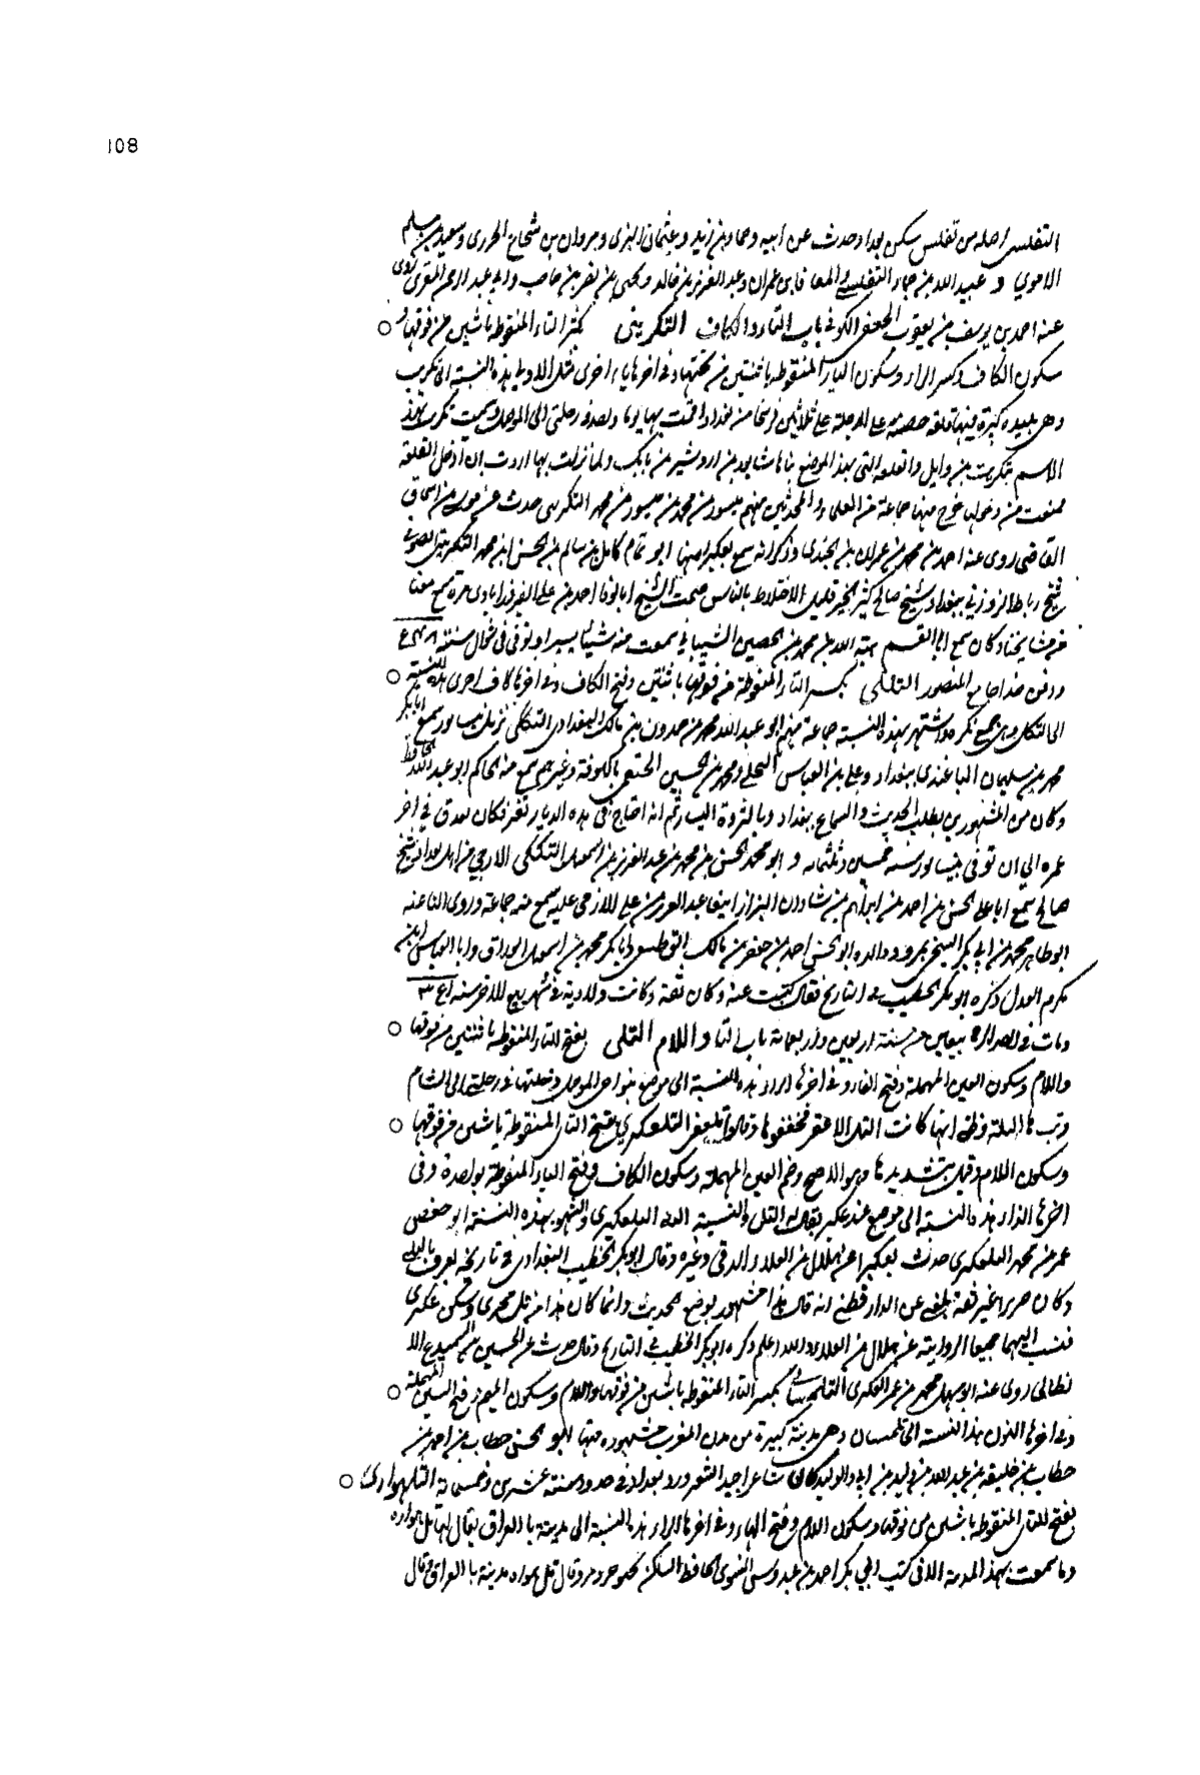 108
التفليسى اصله من تفليس سكن بغداد وحدث عن ابيه وحماد بن زيد وعثمان البرى ومروان بن شجاع الجزرى وسعيد بن مسلم
الاموي و عبيد الله بن جبار التفليسى والمعافا بن عمران وعبد العزيز بن خالد ويحيى بن نصر بن حاجب وابى عبد الرحمن المقرى روى
عنه احمد بن يوسف بن يعقوب الجعفى الكوفى باب التاء والكاف التكريتى بكسر التاء المنقوطة باثنتين من فوقها و
سكون الكاف وكسر الراء وسكون الياء المنقوطة باثنتين من تحتها وفى اخرها تاء اخرى مثل الاولى هذه النسبة الى تكريت
وهى بليدة كبيرة فيها قلعة حصينة على الدجلة على ثلاثين فرسخا من بغداد اقمت بها يوما واحدا فى رحلتى الى الموصل وسميت تكريت بهذا
الاسم بتكريت بن وايل والقلعة التى بهذا الموضع بناها شابور بن اردشير بن بابك ولما نزلت بها اردت ان ادخل القلعة
فمنعت من دخولها خرج منها جماعة من العلماء والمحدثين منهم ميسور بن محمد بن ميسور بن محمد التكريتى حدث عن موسى بن اسحاق
القاضى روى عنه احمد بن محمد بن عمران بن الجندى وذكر انه سمع بعكبرا منها ابو تمام كامل بن سالم بن الحسن ابن محمد التكريتى الصوفى
شيخ رباط الزوزنى ببغداد شيخ صالح كثير الخير قليل الاختلاط بالناس صحب الشيخ ابا الوفا احمد بن على الفيروزابادى مرة سمع معنا
من مشايخنا وكان سمع ابا القسم هبة الله بن محمد بن الحصين الشيبانى سمعت منه شيئا يسيرا وتوفى فى شوال سنة
ودفن حذا جامع المنصور التككى بكسر التاء المنقوطة من فوقها باثنتين وفتح الكاف وفى اخرها كاف اخرى هذه النسبة
الى التكك وهى جمع تكة واشتهر بهذه النسبة جماعة منهم ابو عبد الله محمد بن حمدون بن مالك البغدادى التككى نزيل نيسابور سمع ابا بكر
محمد بن سليمان الباغندى ببغداد وعلى بن العباس البجلى ومحمد بن الحسين الخثعمى بالكوفة وغيرهم سمع منه الحاكم ابو عبد الله الحافظ
وكان من المشهورين بطلب الحديث والسماع ببغداد وبالثروة واليسار ثم انه احتاج فى هذه الديار وتغير فكان يورق فى اخر
عمره الى ان توفى بنيسابور سنة خمسين وثلثمائة و ابو محمد الحسن بن محمد بن عبد العزيز بن اسمعيل التككى الازجى من اهل بغداد شيخ
صالح سمع ابا على الحسن بن احمد بن ابراهيم بن شاذان البزاز ايضا عبد العزيز بن على الازجى عليه سمع منه جماعة وروى لنا عنه
ابو طاهر محمد بن ابى بكر السنجى بمرو ووالده ابو الحسن احمد بن جعفر بن مالك القطيعى وابا بكر محمد بن اسمعيل الوراق وابا العباس ابن
مكرم العدل ذكره ابو بكر الخطيب فى التاريخ فقال كتبت عنه وكان ثقة وكانت ولادته فى شهر ربيع الاخر سنة
ومات فى بيعاين من سنة اربعين واربعمائة باب التا واللام التلى بفتح التاء المنقوطة باثنتين من فوقها
واللام وسكون العين المهملة وفتح الفاء وفى اخرها الراء هذه النسبة الى موضع بنواحى الموصل دخلتها فى رحلتى الى الشام
وبت بها ليلة وظنى انها كانت التل الاعفر فخففوها وقالوا تلعفر التلعكبرى بفتح التاء المنقوطة باثنتين من فوقها
وسكون اللام وقيل بتشديدها وهو الاصح وضم العين المهملة وسكون الكاف وفتح الباء المنقوطة بواحدة وفى
اخرها الراء هذه النسبة الى موضع عند عكبرا يقال له التل والنسبة اليه التلعكبرى والمشهور بهذه النسبة ابو حفص
عمر بن محمد التلعكبرى حدث بعكبرا عن هلال بن العلاء الرقى وغيره وقال ابو بكر الخطيب البغدادى فى تاريخه يعرف بالتلى
وكان ضريرا غير ثقة بلغنى عن الدارقطنى انه قال هذا مشهور بوضع الحديث وانما كان هذا من تل محرى وسكن عكبرى
فنسب اليهما جميعا الرواية عن هلال بن العلاء والله اعلم ذكره ابو بكر الخطيب فى التاريخ وقال حدث عن الحسين بن السميدع الا
نطاكى روى عنه ابو سهل محمد بن عمر العكبرى التلمسانى بكسر التاء المنقوطة باثنتين من فوقها واللام وسكون الميم وفتح السين المهملة
وفى اخرها النون هذه النسبة الى تلمسان وهى مدينة كبيرة من مدن المغرب مشهورة منها ابو الحسن خطاب بن احمد بن
خطاب بن خليفة بن عبد الله بن وليد بن ابى الوليد كان شاعرا جيد الشعر ورد بغداد فى حدود سنة عشرين وخمسمائة التلهوارى
بفتح التاء المنقوطة باثنتين من فوقها وسكون اللام وفتح الهاء وفى اخرها الراء هذه النسبة الى مدينة بالعراق يقال لها تل هواره
وما سمعت بهذه المدينة الا فى كتب ابى بكر احمد بن عبدوس النسوى الحافظ تل هواره مدينة بالعراق وقال